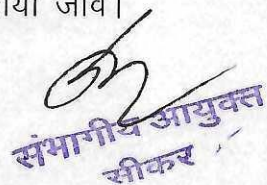 जावे।
संभागीय आयुक्त
सीकर